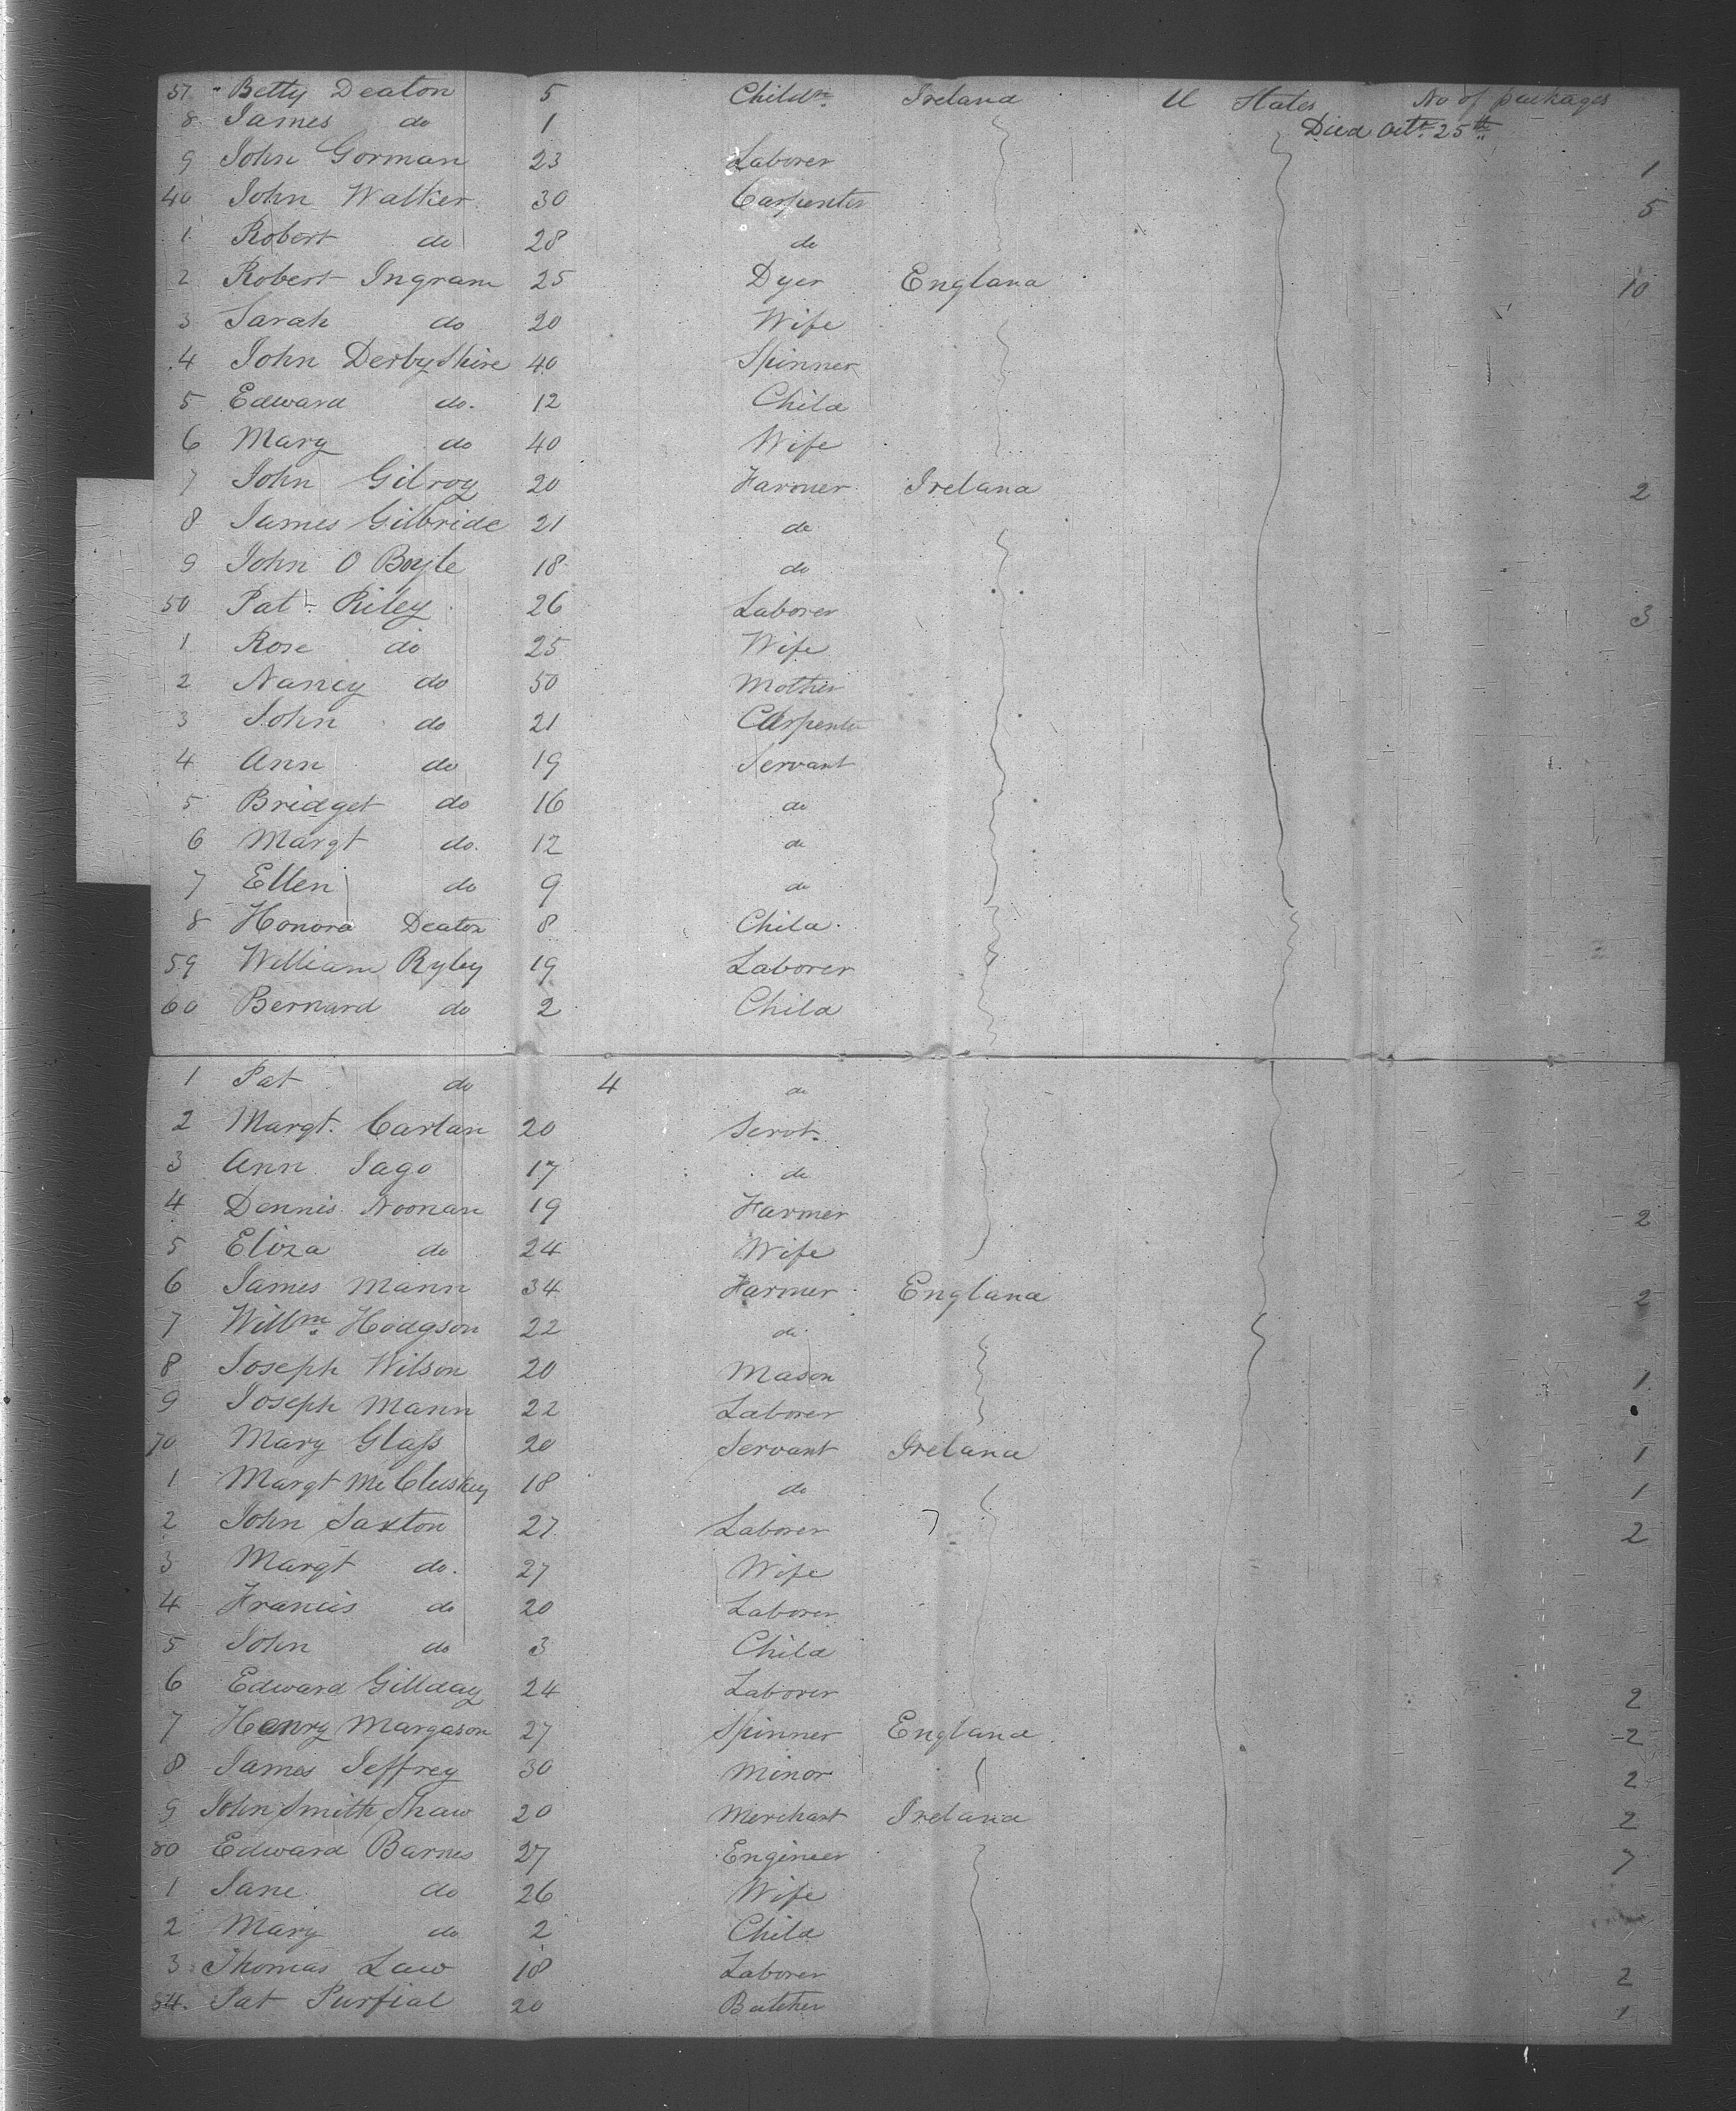 37 " Betty Deaton 5 Childn. Ireland U States No of packages
8 James do 1 Died Octr. 25th
9 John Gorman 23 Laborer 1
40 John Walker 30 Carpenter 5
1 Robert do 28 do
2 Robert Ingram 25 Dyer England 10
3 Sarah do 20 Wife
4 John Derbyshire 40 Spinner
5 Edward do. 12 Child
6 Mary do 40 Wife
7 John Gilroy 20 Farmer Ireland 2
8 James Gilbride 21 do
9 John O Boyle 18 do
50 Pat. Riley 26 Laborer 3
1 Rose do 25 Wife
2 Nancy do 50 Mother
3 John do 21 Carpenter
4 Ann do 19 Servant
5 Bridget do 16 do
6 Margt do. 12 do
7 Ellen do 9 do
8 Honora Deaton 8 Child
59 William Ryley 19 Laborer
60 Bernard do 2 Child
1 Pat do 4 do
2 Margt. Carlan 20 Servt.
3 Ann Jago 17 do
4 Dennis Noonan 19 Farmer 2
5 Eliza do 24 Wife
6 James Mann 34 Farmer England 2
7 Willm. Hodgson 22 do
8 Joseph Wilson 20 Mason 1
9 Joseph Mann 22 Laborer
70 Mary Glass 20 Servant Ireland 1
1 Margt McCluskey 18 do 1
2 John Saxton 27 Laborer 2
3 Margt do. 27 Wife
4 Francis do 20 Laborer
5 John do 3 Child
6 Edward Gillday 24 Laborer 2
7 Henry Margason 27 Spinner England 2
8 James Jeffrey 30 Minor 2
9 John Smith Shaw 20 Merchant Ireland 2
80 Edward Barnes 27 Engineer 7
1 Jane do 26 Wife
2 Mary do 2 Child
3 Thomas Law 18 Laborer 2
84. Pat Purfial 20 Butcher 1